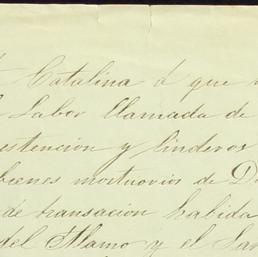 Catalina á que
Labor llamada de
estencion y linderos
bienes mortuorios de D
de transacion habida
del Alamo y el San